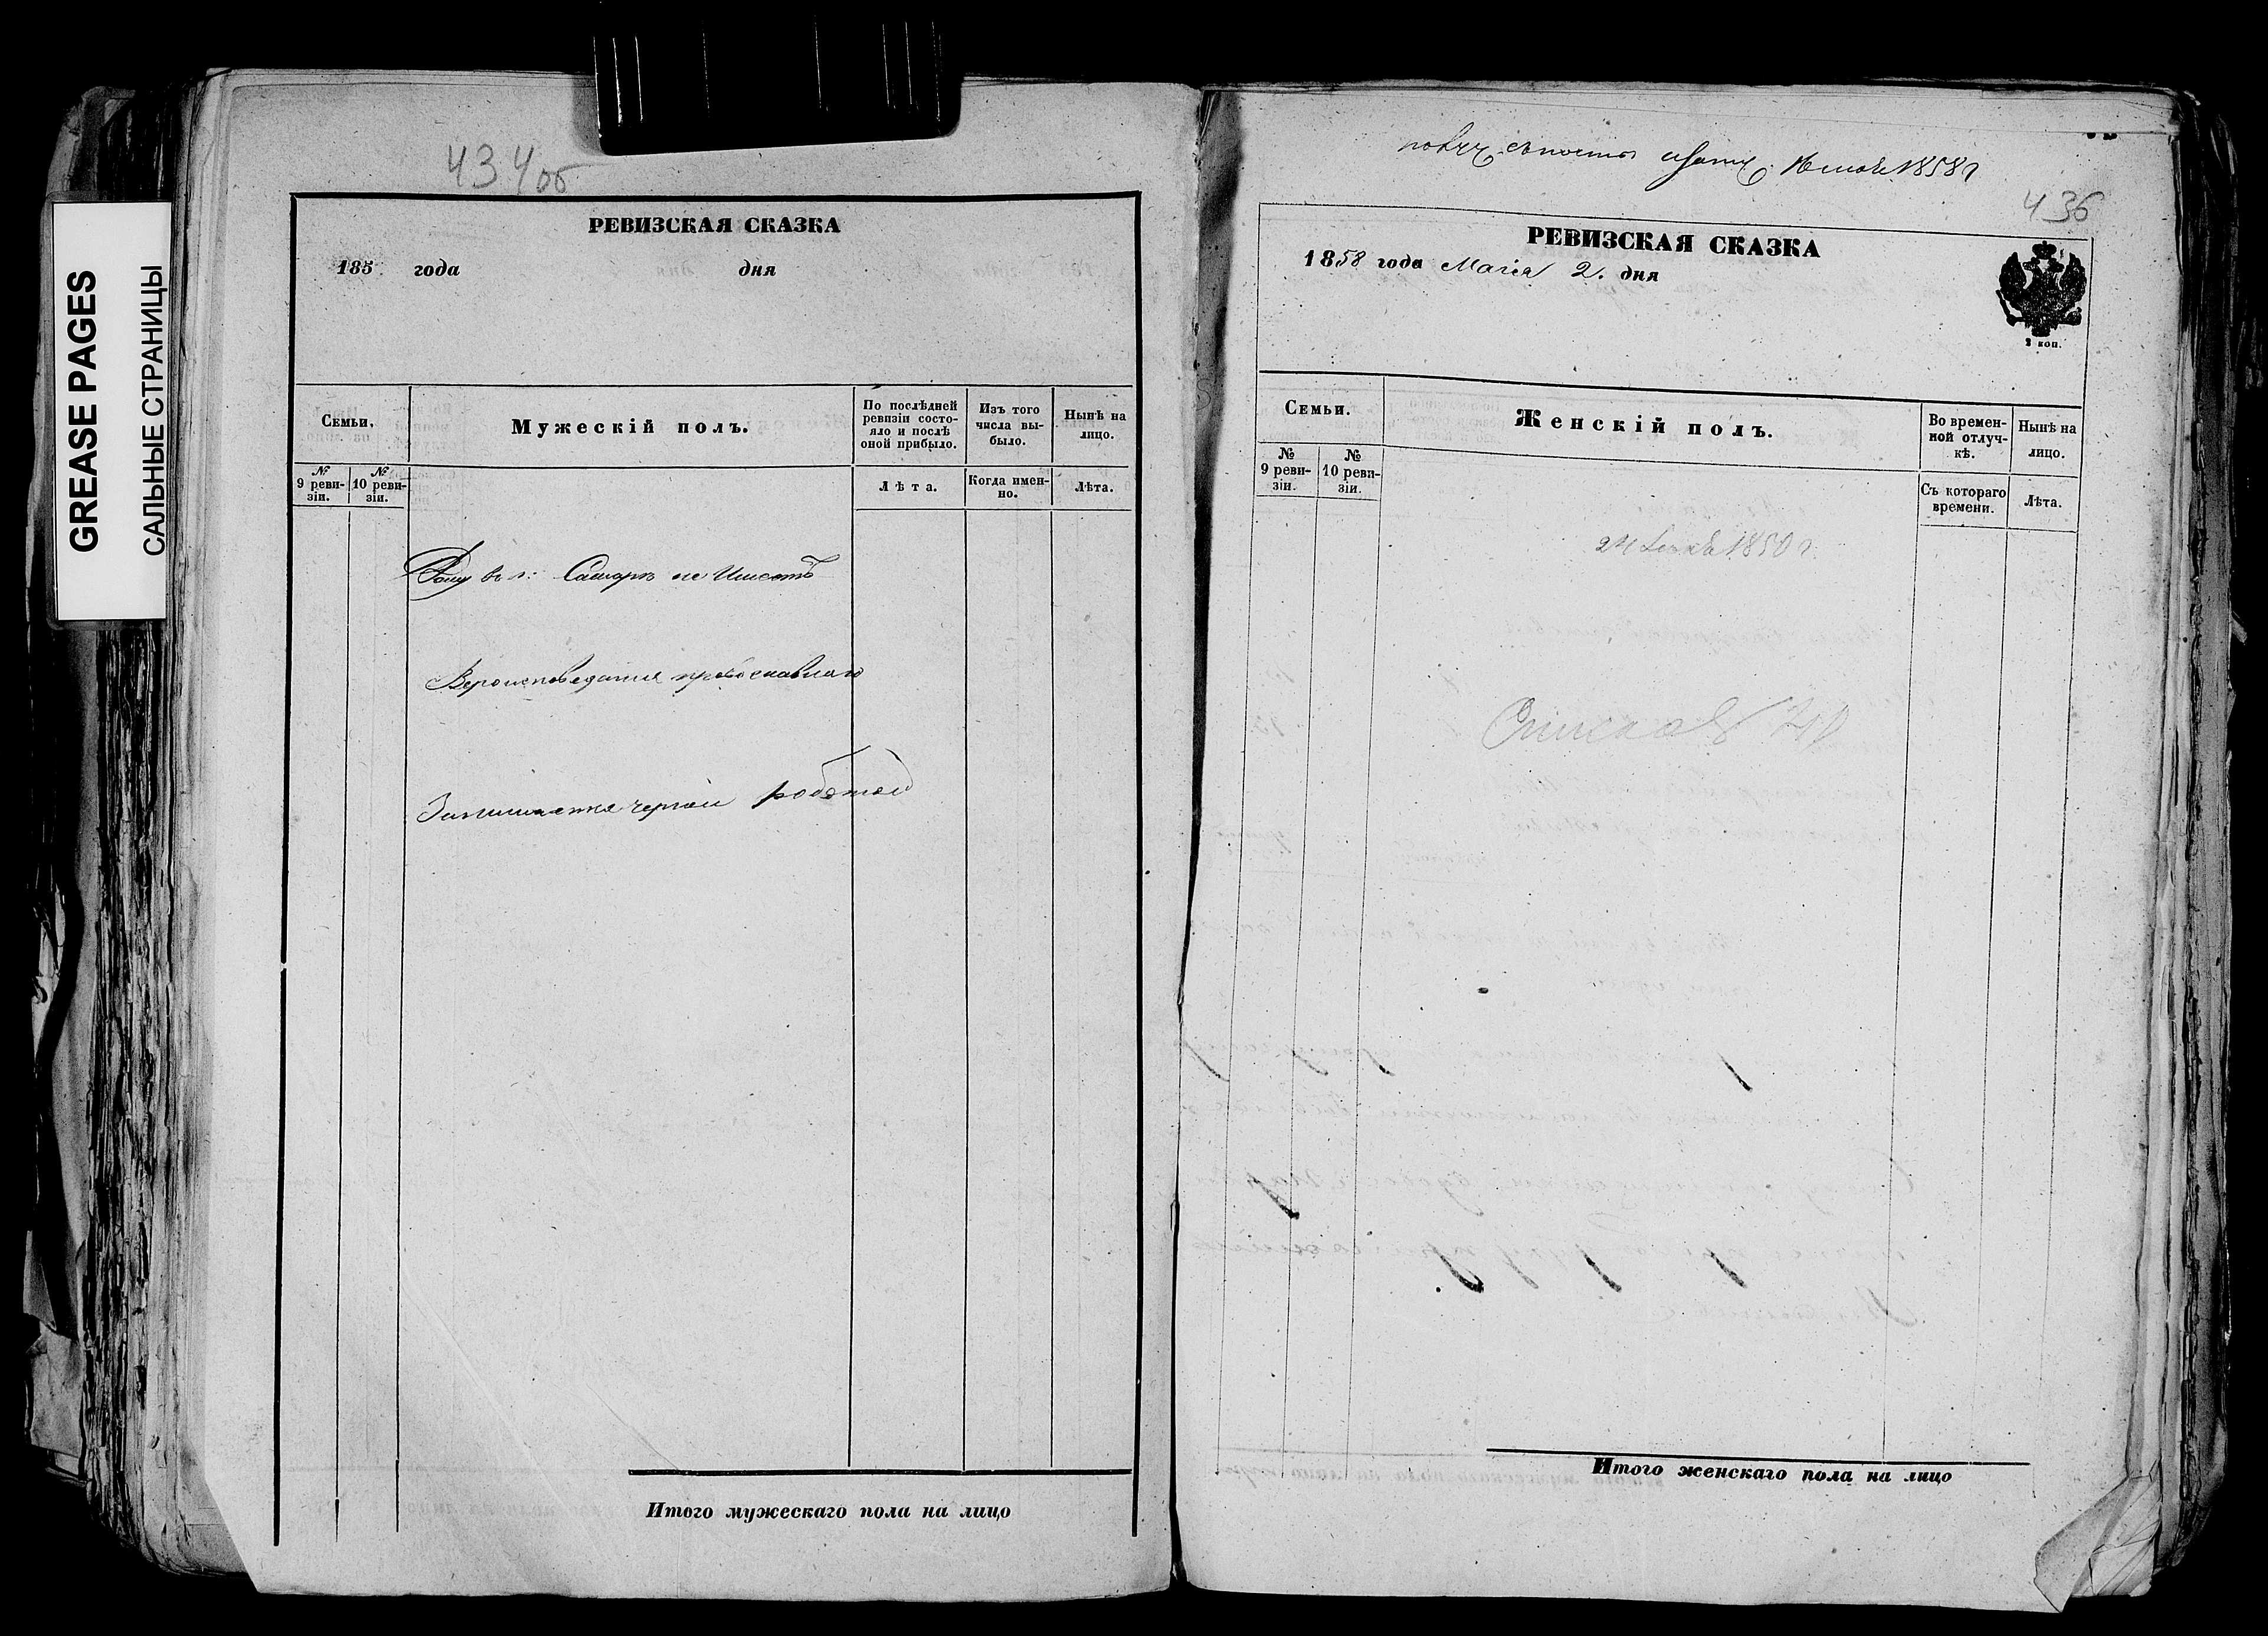 GREASE PAGES
САЛЬНЫЕ СТРАНИЦЫ
434об
РЕВИЗСКАЯ СКАЗКА
185 года дня
Семьи.
Мужескій полъ.
По послѣдней ревизіи состояло и послѣ оной прибыло.
Изъ того числа выбыло.
Нынѣ на лицо.
№ 9 ревизіи.
№ 10 ревизіи.
Лѣта.
Когда именно.
Лѣта.
Дому въ г: Самарѣ не Имеетъ
Вероисповедания православнаго
Занимается черной работой
Итого мужескаго пола на лицо
1858 г
436
РЕВИЗСКАЯ СКАЗКА
1858 года Маiя 2. дня
2 коп.
Семьи.
Женскій полъ.
Во временной отлучкѣ.
Нынѣ на лицо.
№ 9 ревизіи.
№ 10 ревизіи.
Съ котораго времени.
Лѣта.
24 1850 г.
Итого женскаго пола на лицо